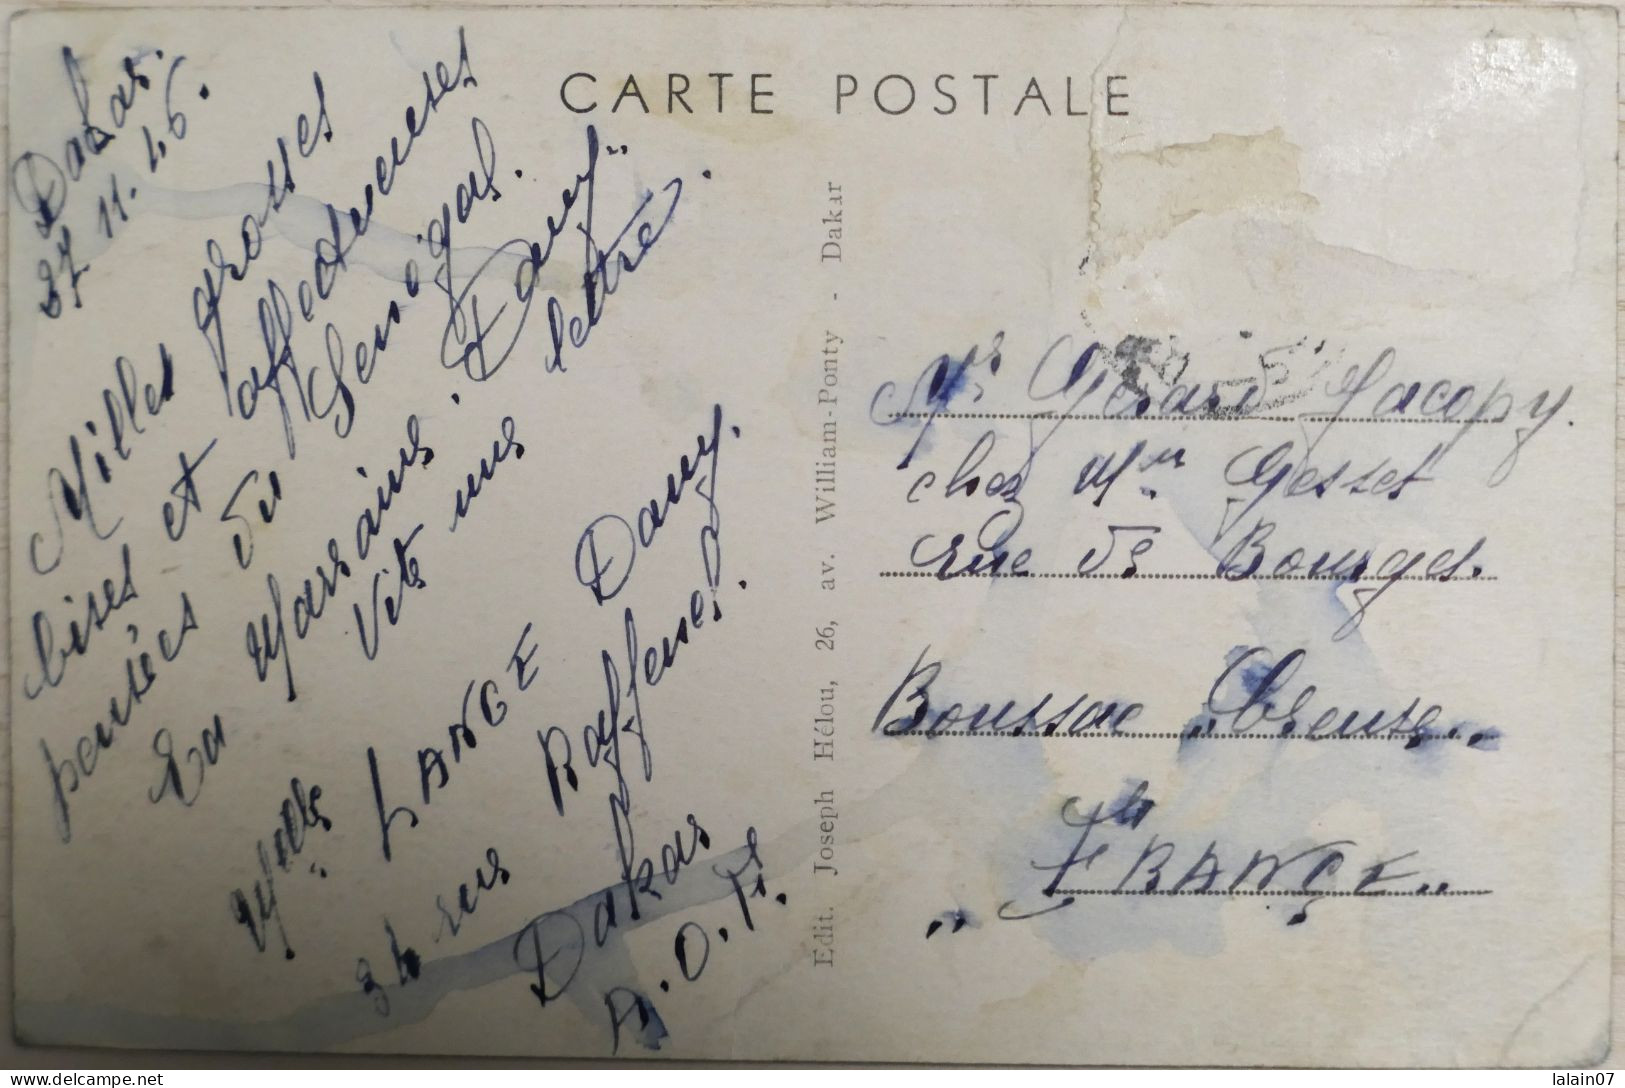 CARTE POSTALE
Dakar.
27.11.46.
Milles grosses
bises et affectueuses
pensées du Sénégal.
Ta Marraine. Dany"
Vite une lettre.
Melle LANGE Dany.
34 rue Raffenel.
Dakar
A.O.F.
Edit. Joseph Hélou, 26, av. William-Ponty - Dakar
Mr Gérard Jacopy.
chez Mme Gesset
rue de Bourges.
Boussac "Creuse"
"FRANCE"
delcampe.net
lalain07